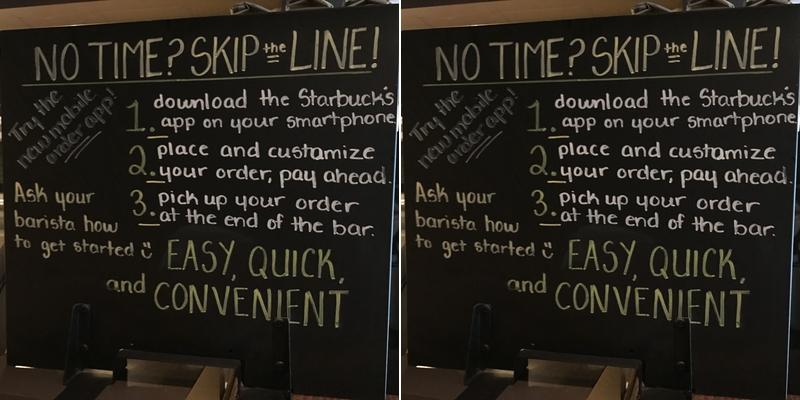 NO TIME? SKIP the LINE!
Try the
new mobile
order app!
1. download the Starbuck's
app on your smartphone
2. place and customize
your order, pay ahead.
3. pick up your order
at the end of the bar.
Ask your
barista how
to get started
EASY, QUICK,
and CONVENIENT
NO TIME? SKIP the LINE!
Try the
new mobile
order app!
1. download the Starbuck's
app on your smartphone
2. place and customize
your order, pay ahead.
3. pick up your order
at the end of the bar.
Ask your
barista how
to get started
EASY, QUICK,
and CONVENIENT